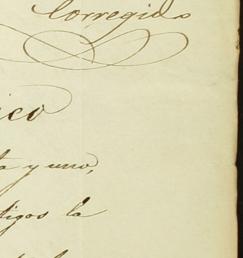 Corregido
ico
ta y uno,
tigos la